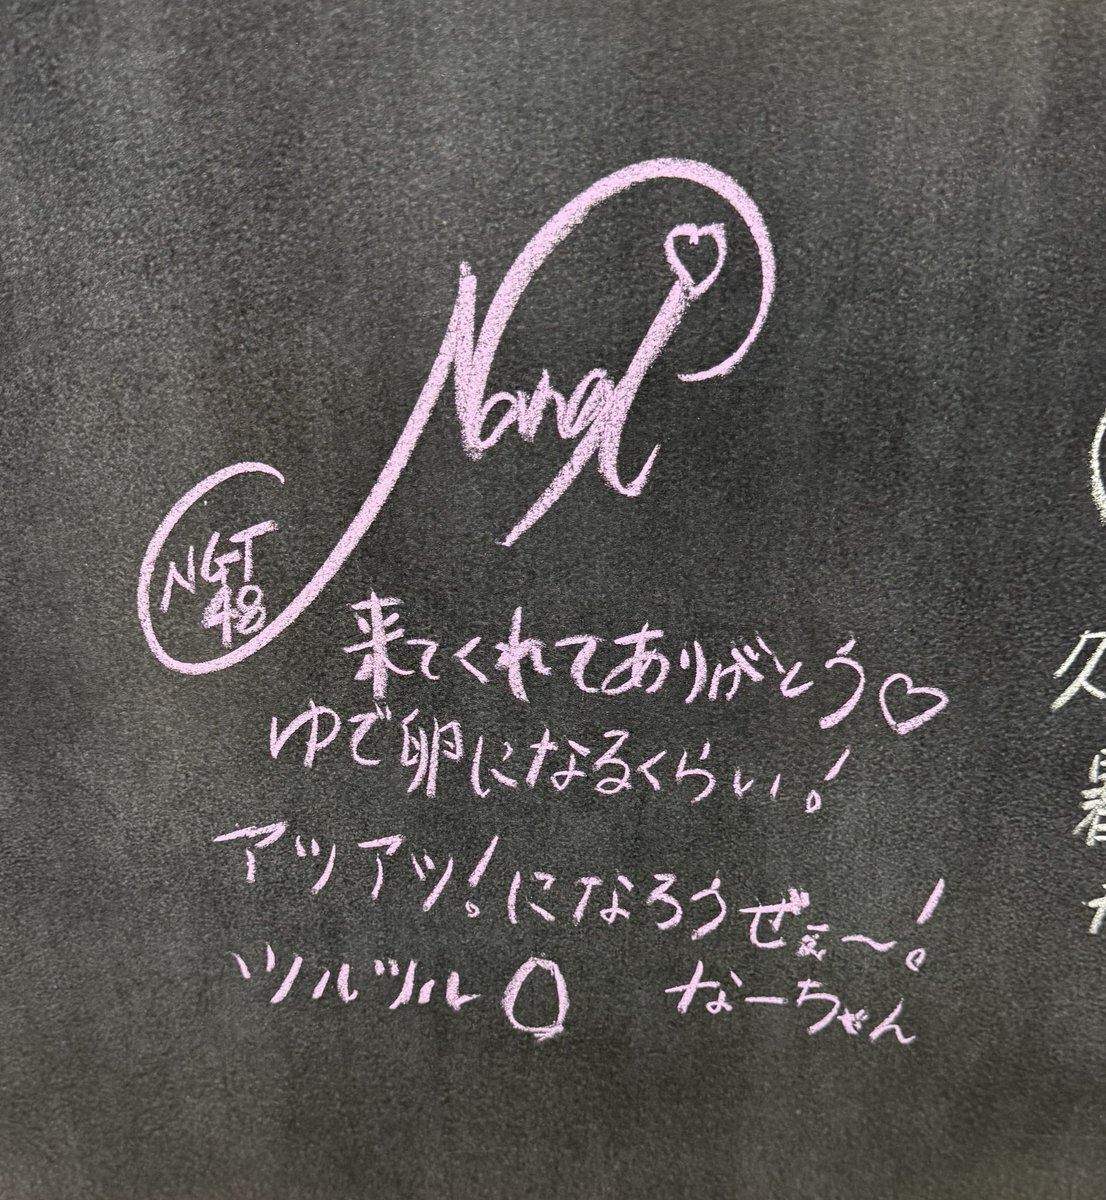 NGT
48
来てくれてありがとう♡
ゆで卵になるくらい!
アツアツ!になろうぜぇ〜!
ツルツル
なーちゃん
久